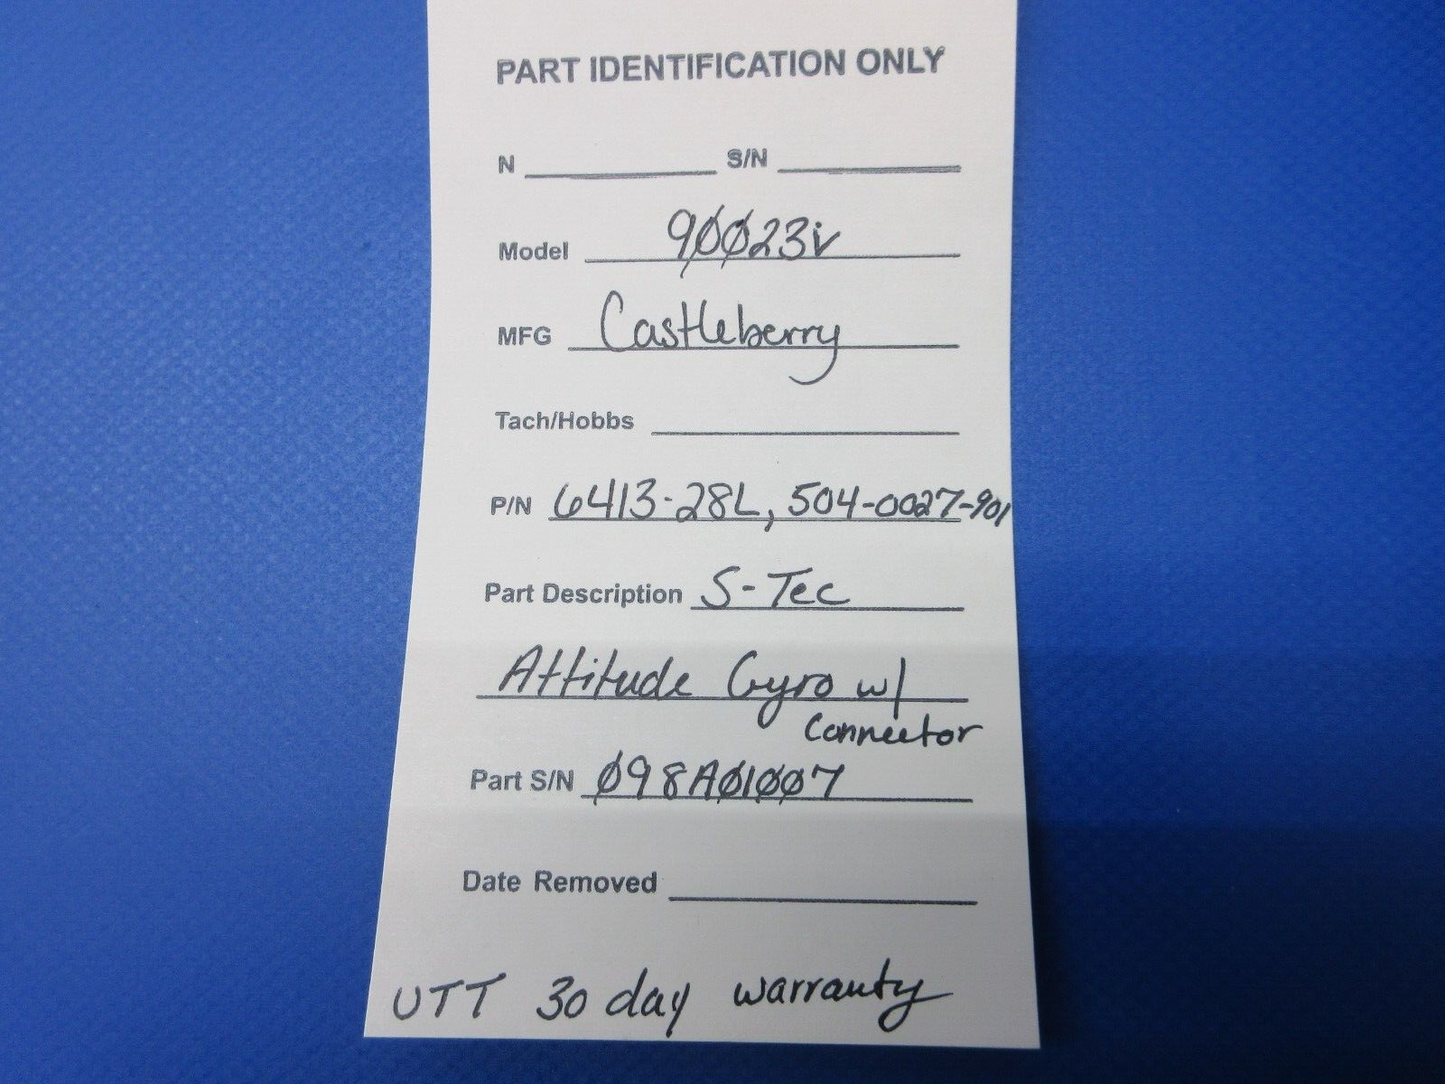 PART IDENTIFICATION ONLY
N S/N
Model 90023iv
MFG Castleberry
Tach/Hobbs
P/N 6413-28L, 504-0027-901
Part Description S-Tec
Attitude Gyro w/
Connector
Part S/N 098A01007
Date Removed
UTT 30 day warranty